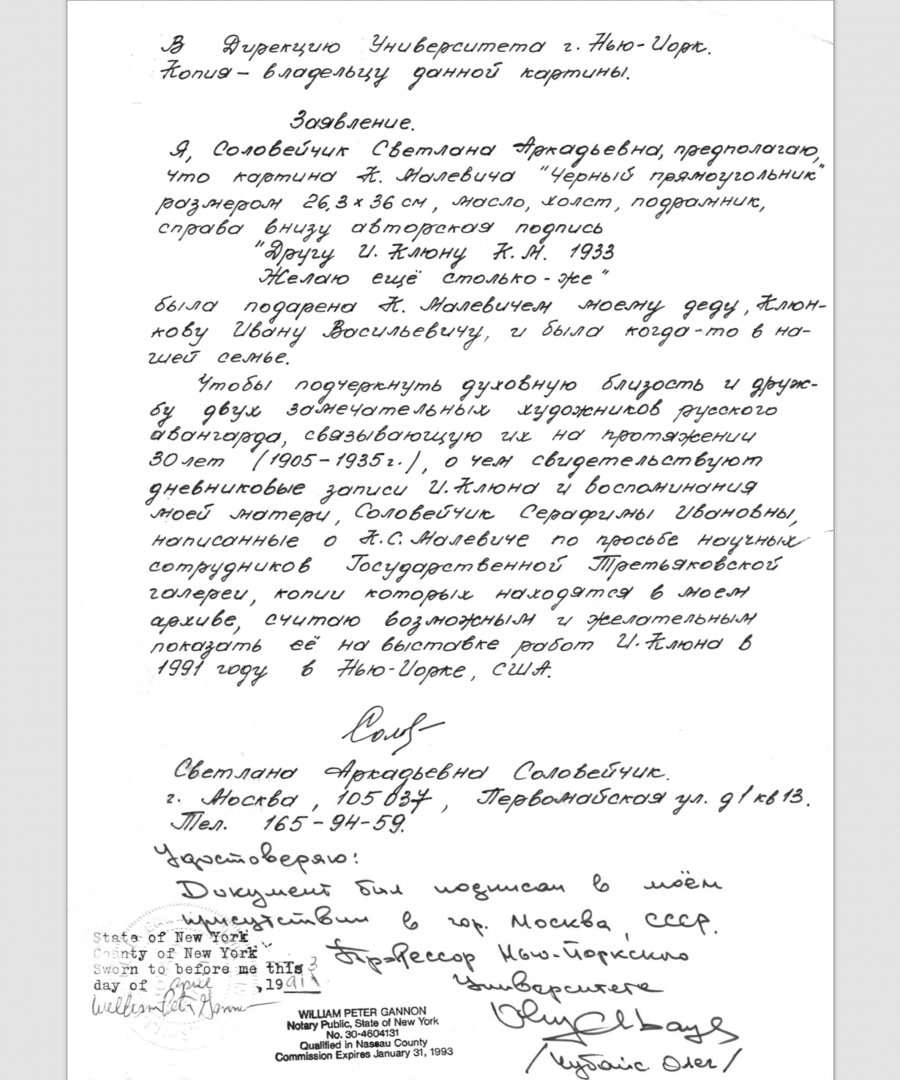 В Дирекцию Университета г. Нью-Иорк.
Копия – владельцу данной картины.
Заявление.
Я, Соловейчик Светлана Аркадьевна, предполагаю,
что картина К. Малевича "Черный прямоугольник"
размером 26,3 x 36 см, масло, холст, подрамник,
справа внизу авторская подпись
"Другу И. Клюну К.М. 1933
Желаю ещё столько-же"
была подарена К. Малевичем моему деду, Клюн-
кову Ивану Васильевичу, и была когда-то в на-
шей семье.
Чтобы подчеркнуть духовную близость и друж-
бу двух замечательных художников русского
авангарда, связывающую их на протяжении
30 лет (1905–1935 г.), о чем свидетельствуют
дневниковые записи И. Клюна и воспоминания
моей матери, Соловейчик Серафимы Ивановны,
написанные о К.С. Малевиче по просьбе научных
сотрудников Государственной Третьяковской
галереи, копии которых находятся в моем
архиве, считаю возможным и желательным
показать её на выставке работ И. Клюна в
1991 году в Нью-Иорке, США.
Светлана Аркадьевна Соловейчик.
г. Москва, 105037, Первомайская ул. д 1 кв 13.
Тел. 165-94-59.
Удостоверяю:
Документ был подписан в моём
присутствии в гор. Москва, СССР.
Профессор Нью-Йоркского
Университета
/Чубайс Олег/
State of New York
County of New York
Sworn to before me this 3
day of April, 1991
William Peter Gannon
WILLIAM PETER GANNON
Notary Public, State of New York
No. 30-4604131
Qualified in Nassau County
Commission Expires January 31, 1993